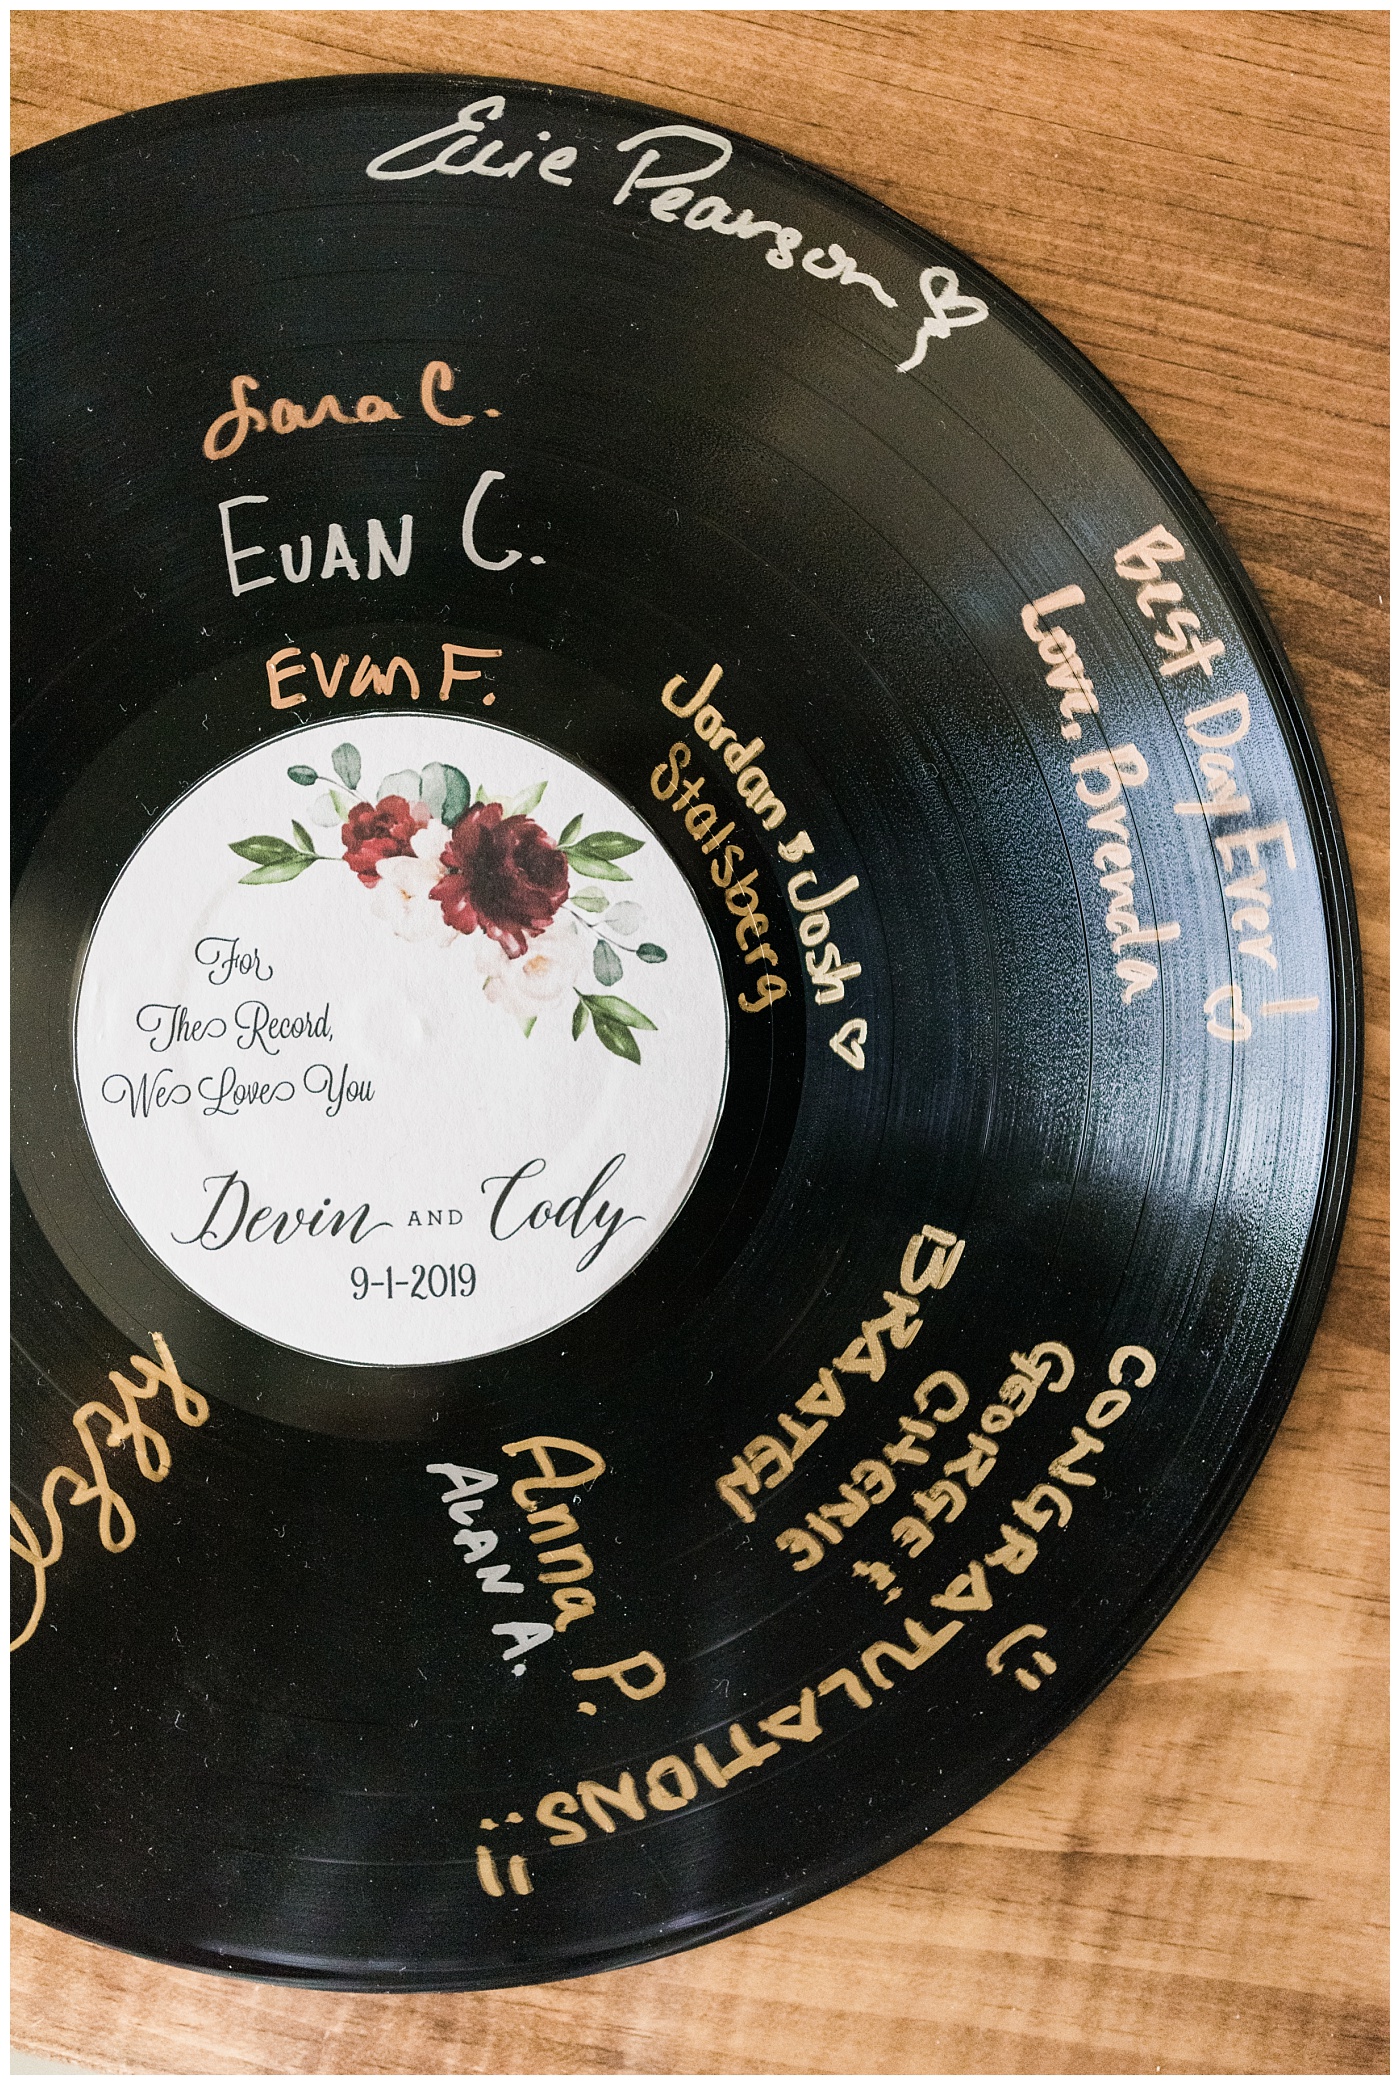 Ellie Pearson
Sara C.
EVAN C.
Evan F.
Best Day Ever!
Love, Brenda
Jordan & Josh
Statsberg
For
The Record,
We Love You
Devin AND Cody
9-1-2019
CONGRATULATIONS!!
GEORGE &
CHERIE
BRATEN
Anna P.
ALAN A.